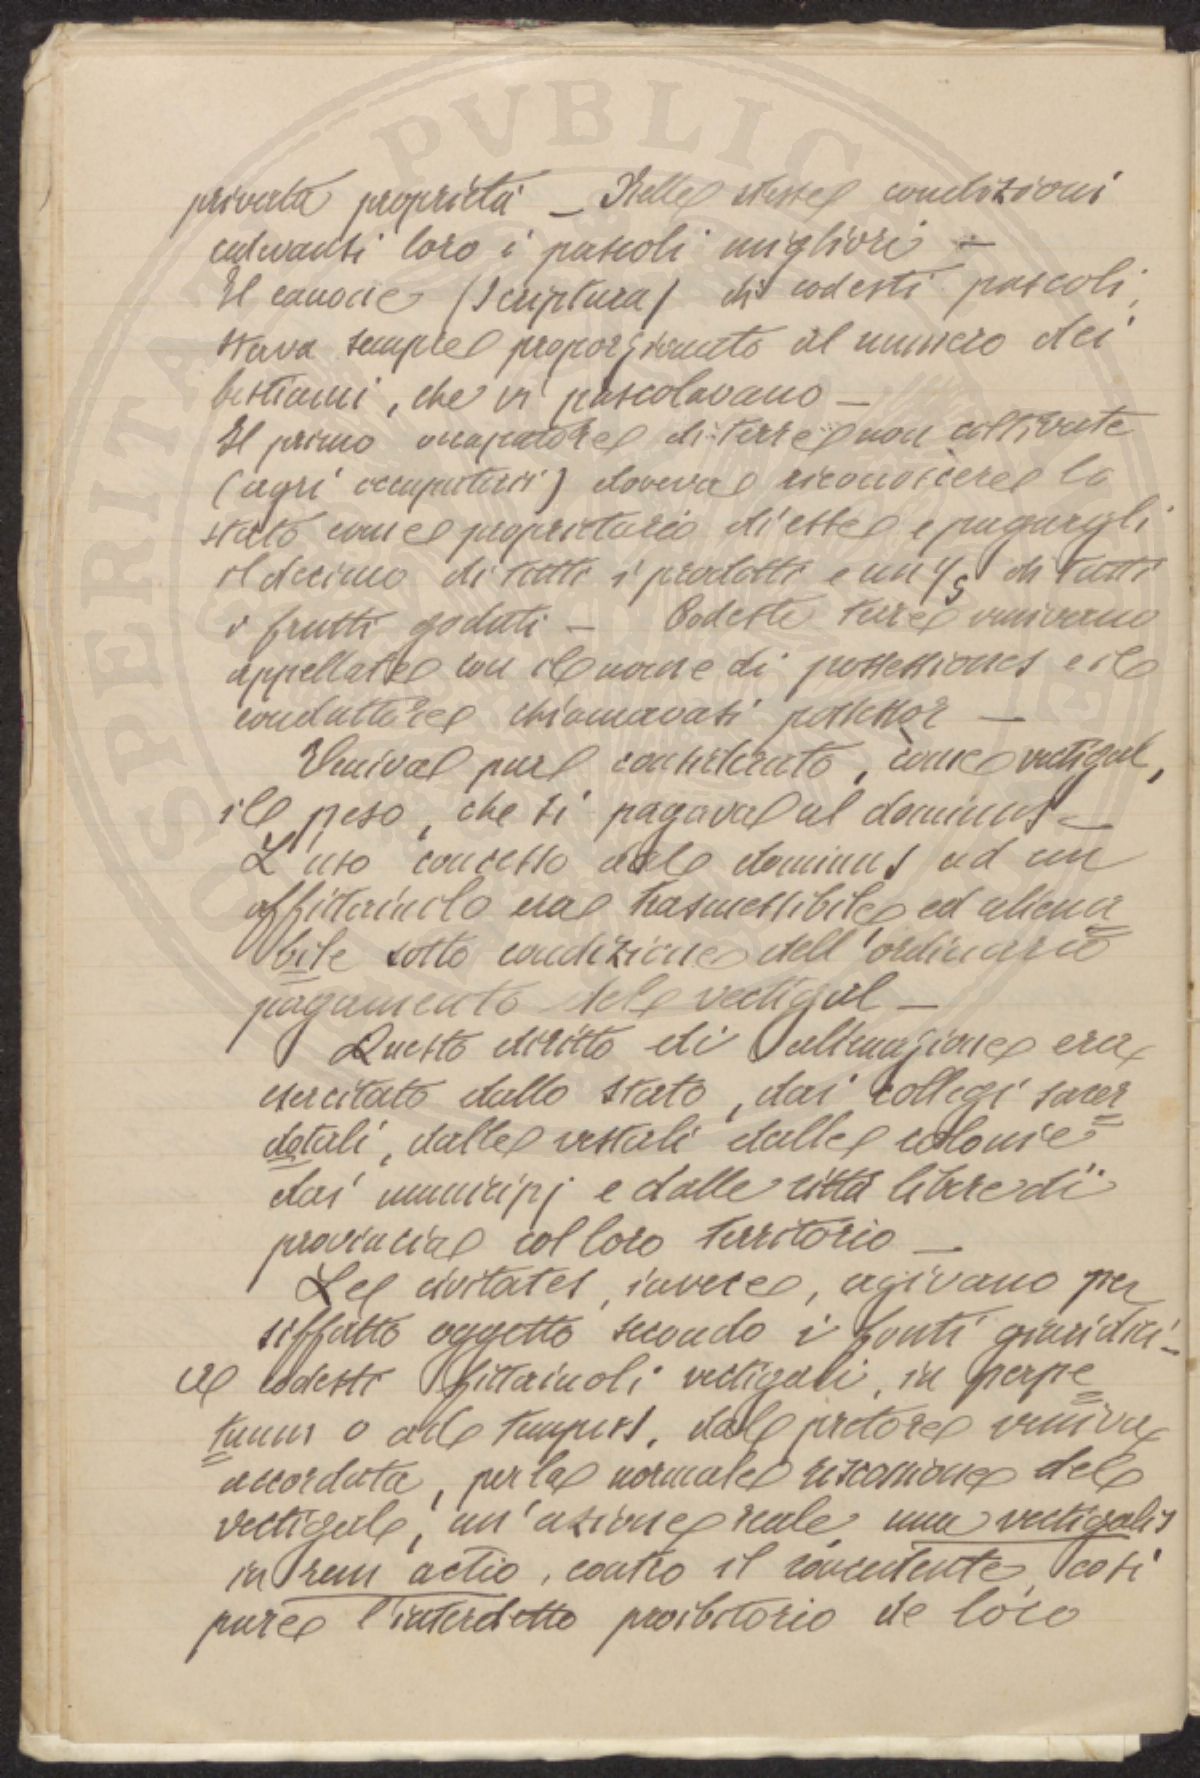 privata proprietà – Nelle stesse condizioni
loro i pascoli migliori –
Il canone (Scriptura) di codesti pascoli,
stava sempre proporzionato al numero dei
bestiami, che vi pascolavano –
Il primo occupatore di terre non coltivate
(agri occupatorii) doveva riconoscere lo
stato come proprietario di esse e pagargli
il decimo di tutti i prodotti e un 1/5 di tutti
i frutti goduti – Codeste terre venivano
appellate con il nome di possessiones e il
conduttore chiamavasi possessor –
Veniva pure considerato, come vectigal,
il peso, che si pagava al dominus –
L'uso concesso dal dominus ad un
affittaiuolo era trasmessibile ed aliena
bile sotto condizione dell'ordinario
pagamento del vectigal –
Questo diritto di alienazione era
esercitato dallo Stato, dai collegi sacer
dotali, dalle vestali dalle colonie
dai municipj e dalle città libere di
provincia col loro territorio –
Le civitates, invece, agivano per
siffatto oggetto secondo i fonti giuridici –
A codesti fittaiuoli vectigali, in perpe
tuum o ad tempus, dal pretore veniva
accordata, per la normale riscossione del
vectigal, un'azione reale una vectigalis
in rem actio, contro il concedente, così
pure l'interdetto proibitorio de loco
PVBLICA